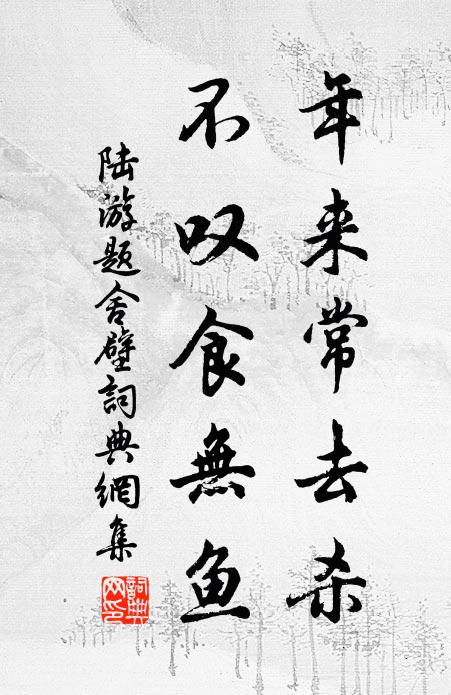 年来常去杀
不叹食無鱼
陆游题舍壁詞典網集
詞典
网印